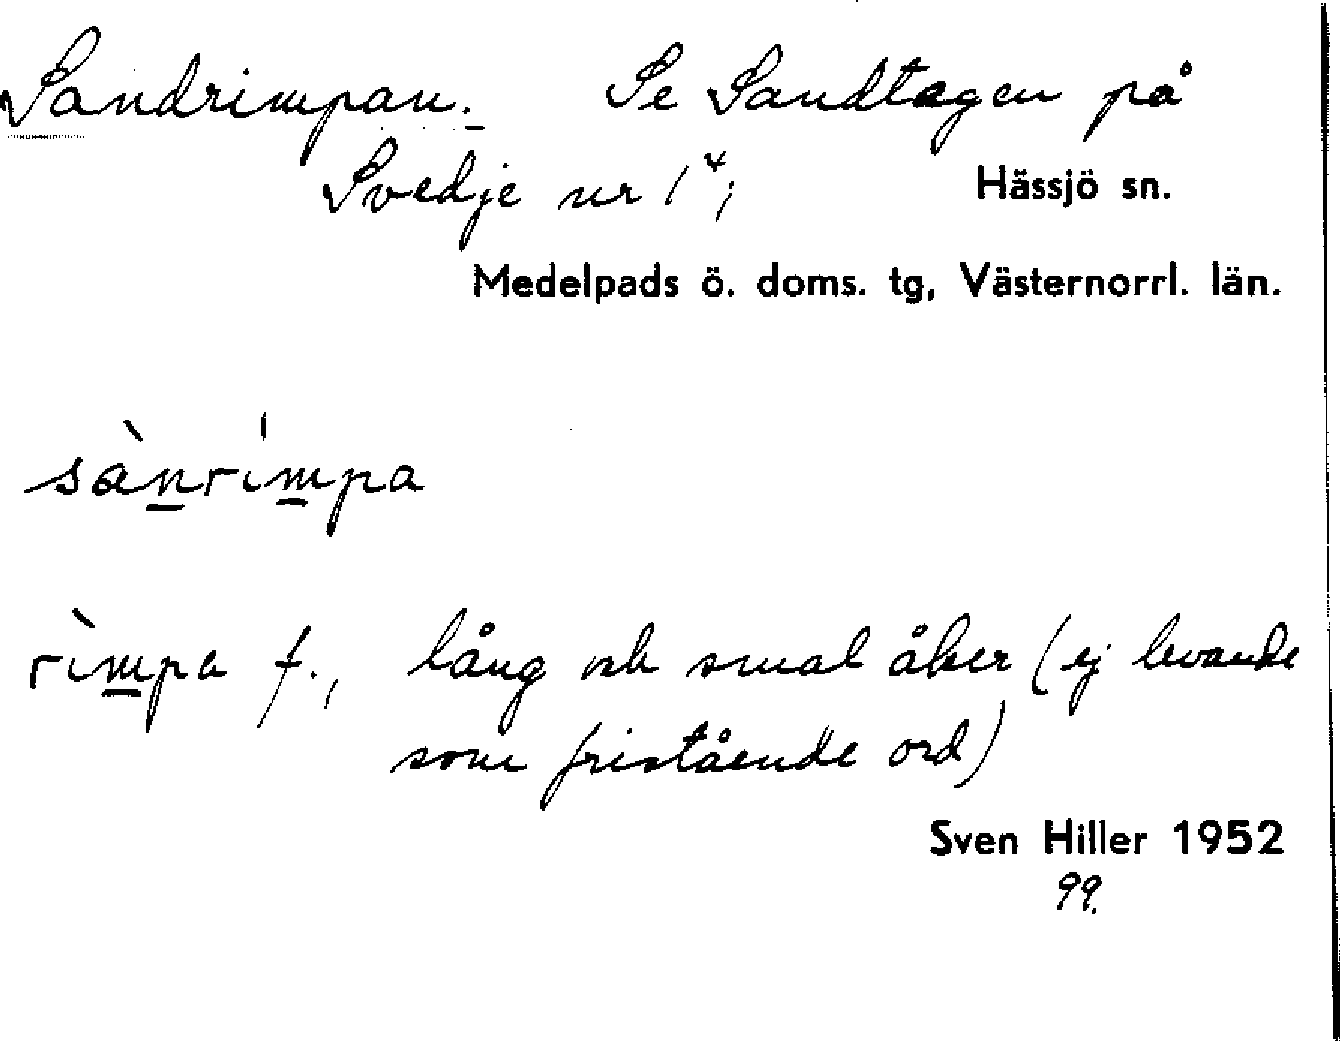 Sandrimpan. Se Sandtagen på
Svedje nr 1⁴; Hässjö sn.
Medelpads ö. doms. tg, Västernorrl. län.
sànrímpa
rìmpa f., lång och smal åker (ej levande
som fristående ord)
Sven Hiller 1952
99.